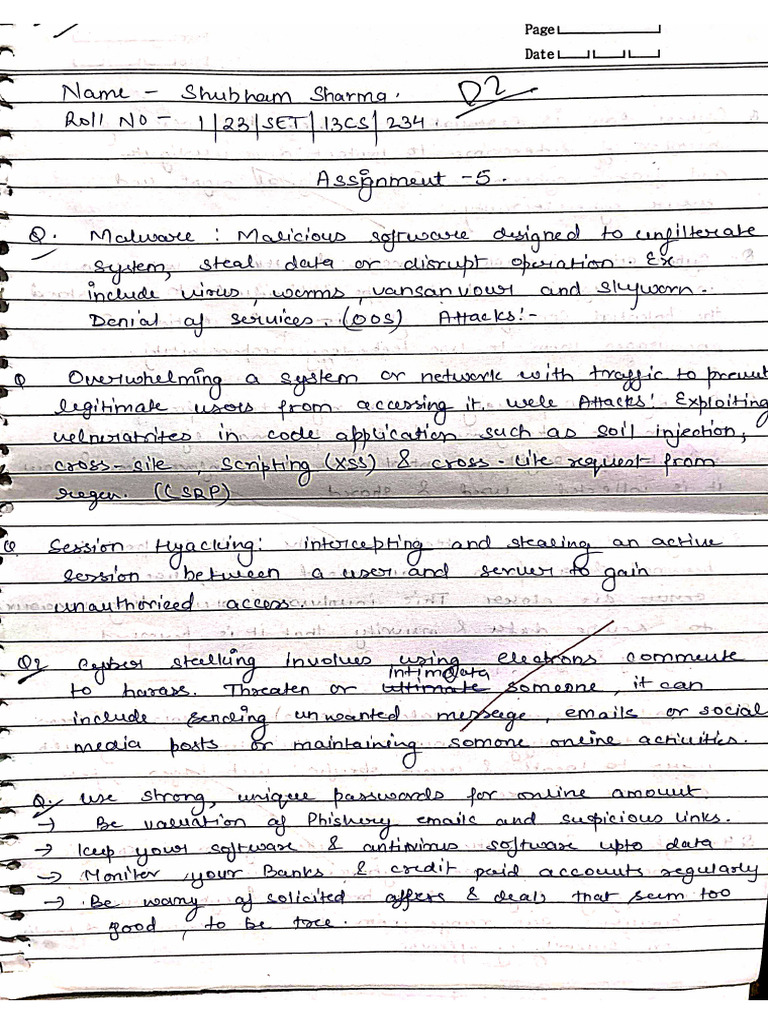 Page
Date
Name - Shubham Sharma. D2
Roll NO - 1|23|SET|13CS|234.
Assignment -5.
Q. Malware : Malicious software designed to unfilterate
system, steal data or disrupt operation. Ex
include virus, worms, vansanvour and skyworn.
Denial of services. (DOS) Attacks!-
Q Overwhelming a system or network with traffic to prevent
legitimate users from accessing it. wele Attacks! Exploiting
velneratrites in code application such as soil injection,
cross-site, scripting (XSS) & cross-lite request from
regen. (CSRP)
Q Session Hyacking: intercepting and stealing an active
session between a user and server to gain
unauthorized access.
Q2 Cyber stalking involves using electrons commute
intimdata
to harass. Threaten or ultimate someone, it can
include sending unwanted message, emails or social
media posts or maintaining somone online activities.
Q. use strong, unique passwords for online amount.
→ Be valuation of Phishery emails and suspicious links.
→ Keep your software & antivirus software upto data
→ Moniter your Banks & credit paid accounts regularly
→ Be wany of solicited affers & deals that seem too
good, to be tree.